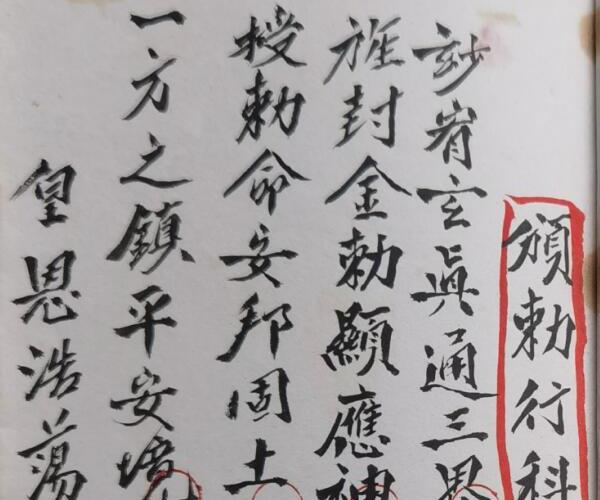 頒勅行科
玅宵玄眞通三界
旌封金勅顯應神
授勅命安邦固土
一方之鎮平安
皇恩浩蕩